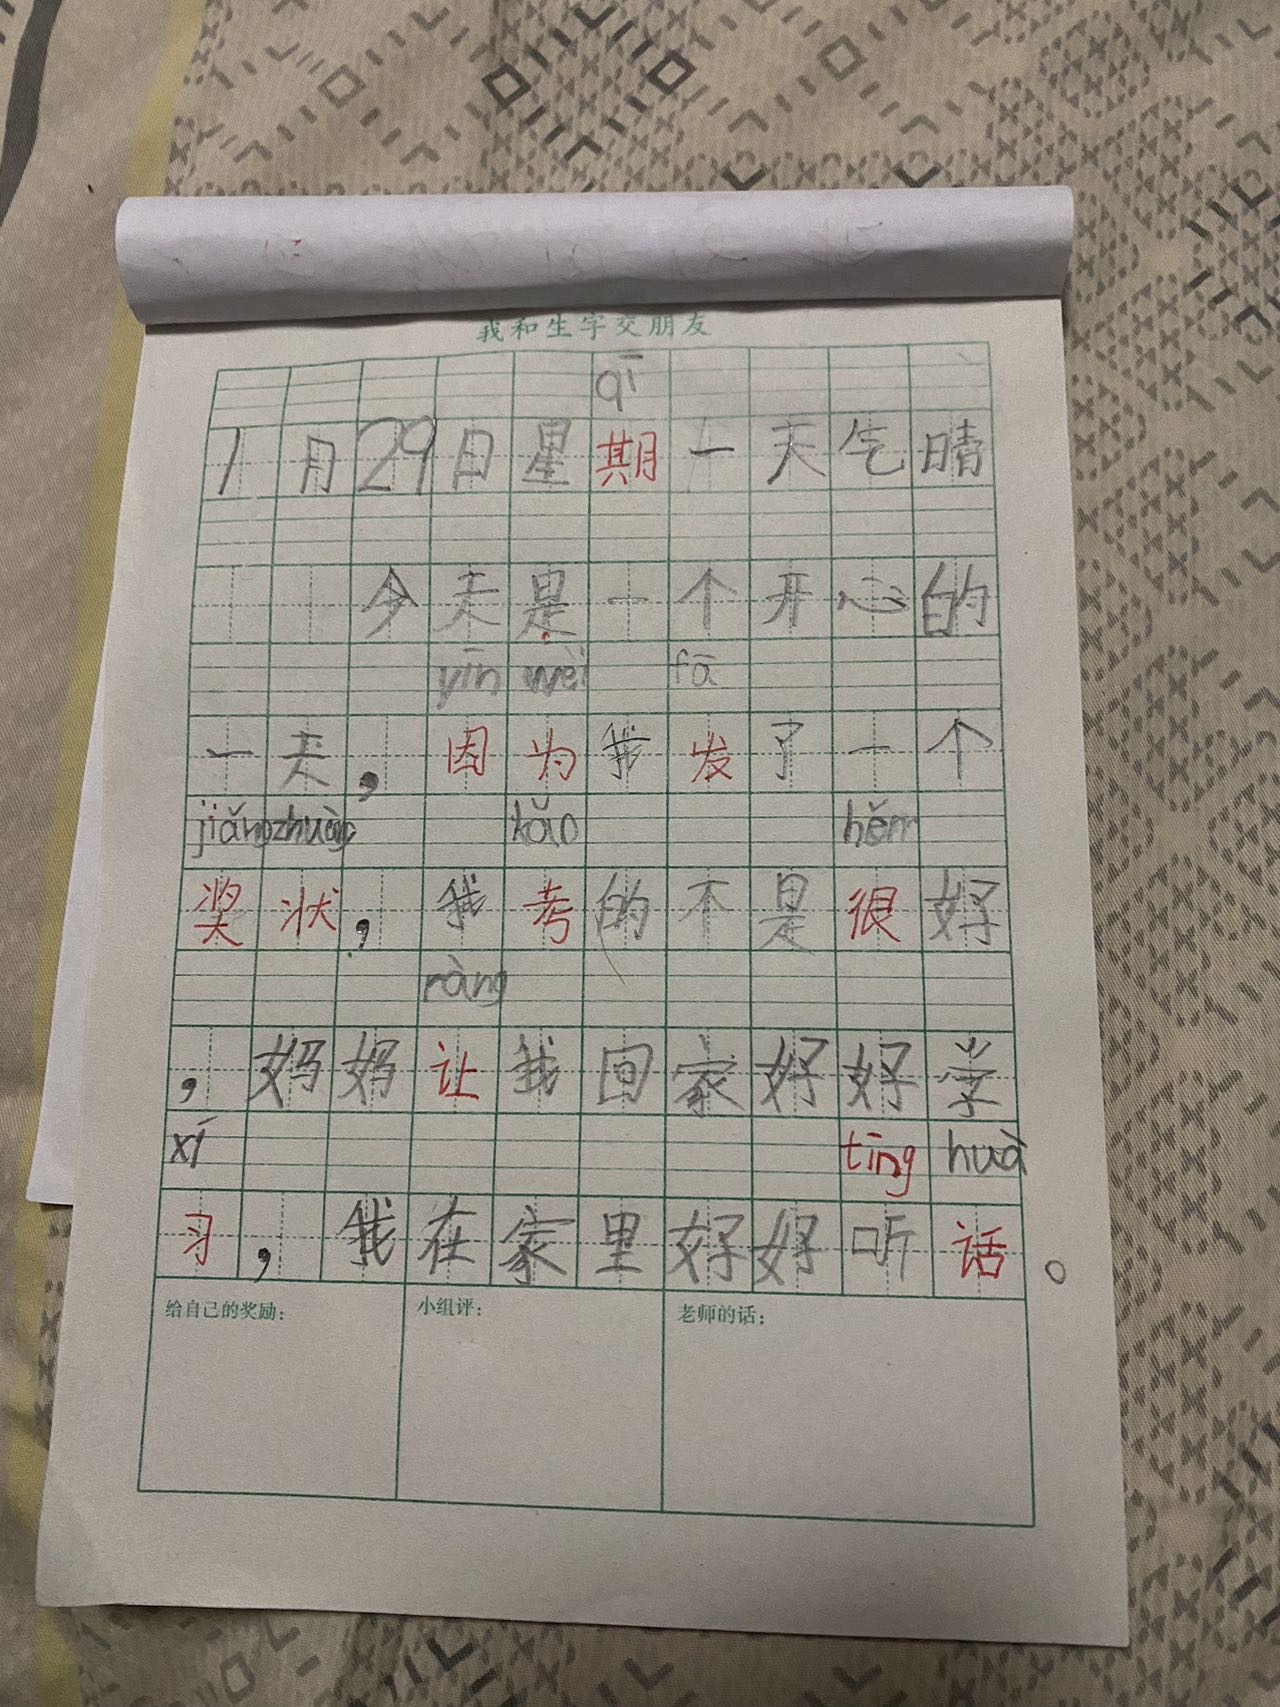 我和生字交朋友
qī
1月29日星期一天气晴
今天是一个开心的
yīn wèi fā
一天，因为我发了一个
jiǎng zhuàng kǎo hěn
奖状，我考的不是很好
ràng
，妈妈让我回家好好学
xí tīng huà
习，我在家里好好听话。
给自己的奖励： 小组评： 老师的话：